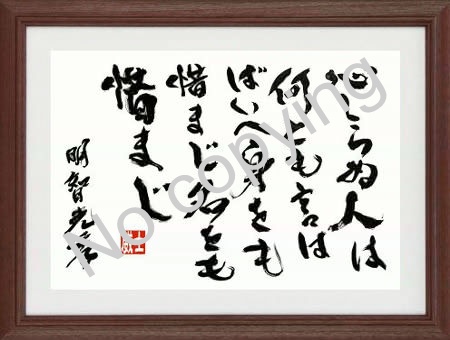 心しらぬ人は
何とも言は
ばいへ身をも
惜まじ名をも
惜まじ
明智光秀
No copying